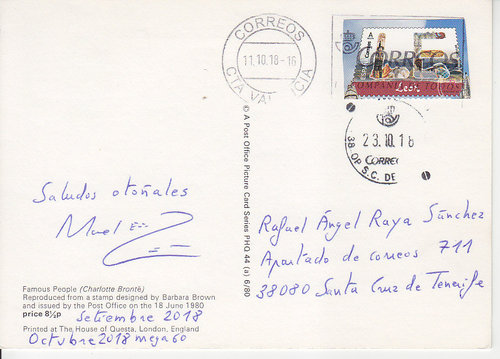 CORREOS
11.10.18-16
CTA VA CIA
CORREOS
A
León
COMPAN TODOS
23.10.18
CORREO
38-OP S.C. DE
© A Post Office Picture Card Series PHQ 44 (a) 6/80
Saludos otoñales
Rafael Ángel Raya Sánchez
Apartado de correos 711
38080 Santa Cruz de Tenerife
Famous People (Charlotte Brontë)
Reproduced from a stamp designed by Barbara Brown
and issued by the Post Office on the 18 June 1980
price 8½p
Setiembre 2018
Printed at The House of Questa, London, England
Octubre 2018 mega60